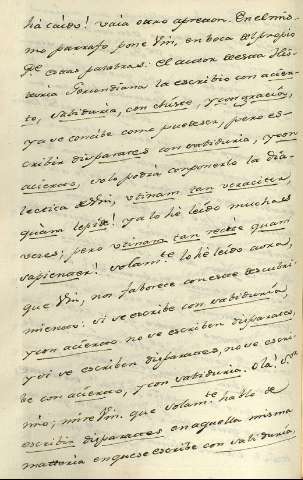 há caído! vaia otro apreton. En el mis-
mo parrafo pone Vm, en boca del propio
estas palabras: el author de esta His-
toria Gerundiana la escribio con acier-
to, sabiduria, con chiste, y con gracejo,
ya se concibe como puede ser, pero es-
cribir disparates con sabiduria, y con
acierto, solo podra componerlo la dia-
lectica de Vm, utinam tan veraciter,
quam lepide! ya lo hé leído muchas
veces; pero utinam tan recte quam
sapienter! solamte lo hé leído aora,
que Vm, nos faborece con este descubri-
miento. si se escribe con sabiduria,
y con acierto no se escriben disparates,
y si se escriben disparates, no se escri-
be con acierto, y con sabiduria. Ola! Sor
mio; mire Vm. que solamte hablo de
escribir disparates en aquella misma
matteria en que se escribe con sabiduria